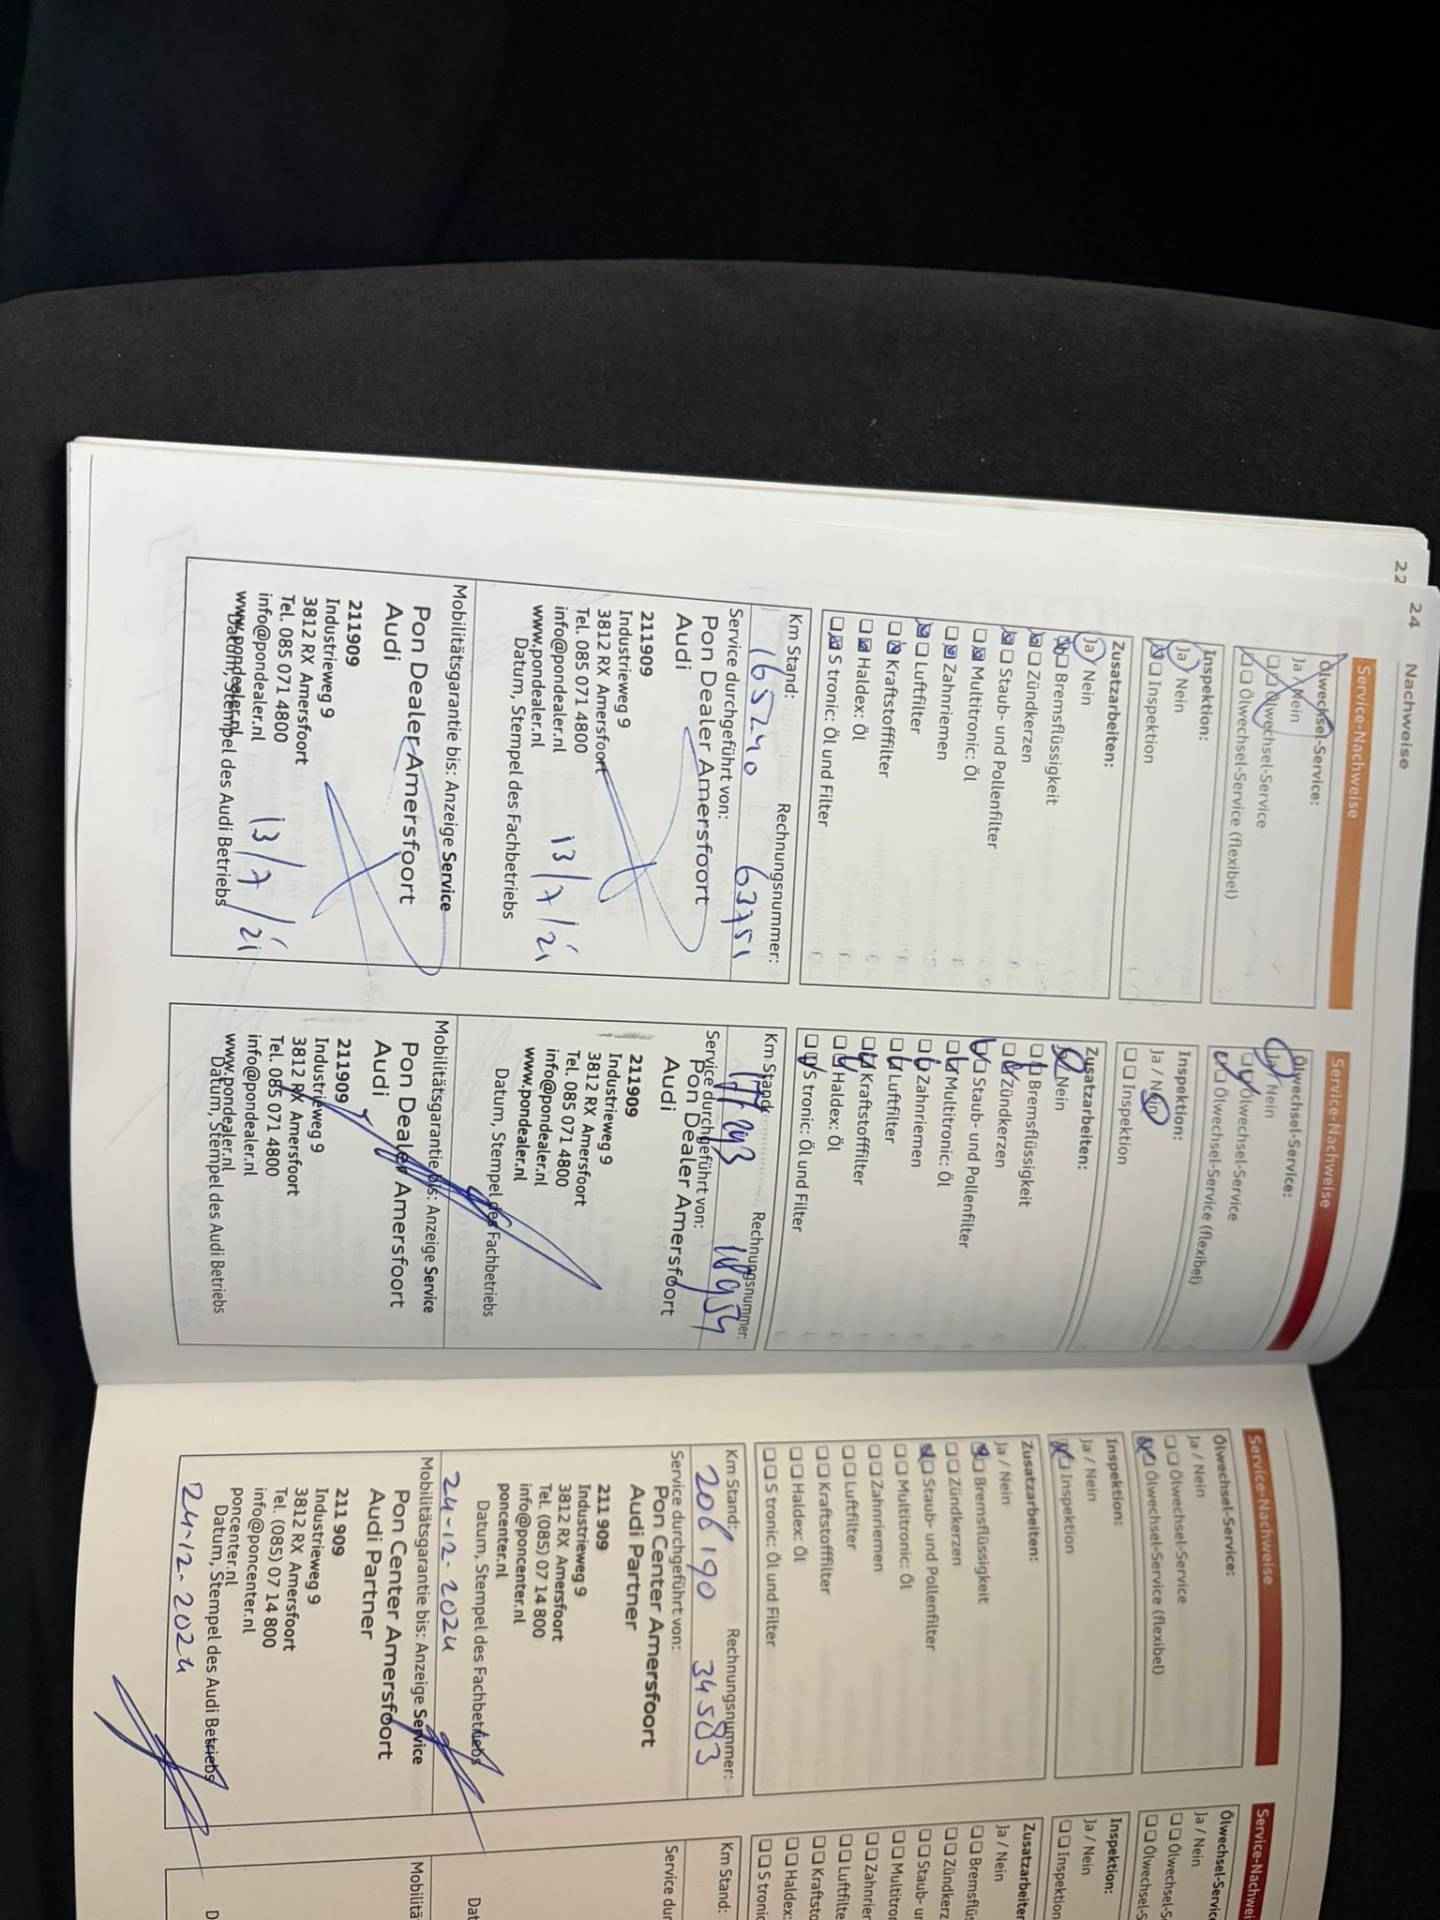 22
24
Nachweise
Service-Nachweise
Ölwechsel-Service:
Ja / Nein
Ölwechsel-Service
Ölwechsel-Service (flexibel)
Inspektion:
Ja / Nein
Inspektion
Zusatzarbeiten:
Ja / Nein
Bremsflüssigkeit
Zündkerzen
Staub- und Pollenfilter
Multitronic: Öl
Zahnriemen
Luftfilter
Kraftstofffilter
Haldex: Öl
S tronic: Öl und Filter
Km Stand: Rechnungsnummer:
165240 63751
Service durchgeführt von:
Pon Dealer Amersfoort
Audi
211909
Industrieweg 9
3812 RX Amersfoort
Tel. 085 071 4800
info@pondealer.nl
www.pondealer.nl
13/7/21
Datum, Stempel des Fachbetriebs
Mobilitätsgarantie bis: Anzeige Service
Pon Dealer Amersfoort
Audi
211909
Industrieweg 9
3812 RX Amersfoort
Tel. 085 071 4800
info@pondealer.nl
www.pondealer.nl
13/7/21
Datum, Stempel des Audi Betriebs
Service-Nachweise
Ölwechsel-Service:
Ja / Nein
Ölwechsel-Service
Ölwechsel-Service (flexibel)
Inspektion:
Ja / Nein
Inspektion
Zusatzarbeiten:
Nein
Bremsflüssigkeit
Zündkerzen
Staub- und Pollenfilter
Multitronic: Öl
Zahnriemen
Luftfilter
Kraftstofffilter
Haldex: Öl
S tronic: Öl und Filter
Km Stand: Rechnungsnummer:
Service durchgeführt von:
Pon Dealer Amersfoort
Audi
211909
Industrieweg 9
3812 RX Amersfoort
Tel. 085 071 4800
info@pondealer.nl
www.pondealer.nl
Datum, Stempel des Fachbetriebs
Mobilitätsgarantie bis: Anzeige Service
Pon Dealer Amersfoort
Audi
211909
Industrieweg 9
3812 RX Amersfoort
Tel. 085 071 4800
info@pondealer.nl
www.pondealer.nl
Datum, Stempel des Audi Betriebs
Service-Nachweise
Ölwechsel-Service:
Ja / Nein
Ölwechsel-Service
Ölwechsel-Service (flexibel)
Inspektion:
Ja / Nein
Inspektion
Zusatzarbeiten:
Ja / Nein
Bremsflüssigkeit
Zündkerzen
Staub- und Pollenfilter
Multitronic: Öl
Zahnriemen
Luftfilter
Kraftstofffilter
Haldex: Öl
S tronic: Öl und Filter
Km Stand: Rechnungsnummer:
206190 34583
Service durchgeführt von:
Pon Center Amersfoort
Audi Partner
211 909
Industrieweg 9
3812 RX Amersfoort
Tel. (085) 07 14 800
info@poncenter.nl
poncenter.nl
Datum, Stempel des Fachbetriebs
24-12-2024
Mobilitätsgarantie bis: Anzeige Service
Pon Center Amersfoort
Audi Partner
211 909
Industrieweg 9
3812 RX Amersfoort
Tel. (085) 07 14 800
info@poncenter.nl
poncenter.nl
Datum, Stempel des Audi Betriebs
24-12-2024
Service-Nachwei
Ölwechsel-Servic
Ja / Nein
Ölwechsel-S
Ölwechsel-S
Inspektion:
Ja / Nein
Inspektion
Zusatzarbeiten
Ja / Nein
Bremsflüs
Zündkerz
Staub- u
Multitror
Zahnrier
Luftfilte
Kraftsto
Haldex:
S tronic
Km Stand:
Service dur
Dat
Mobilitä
D